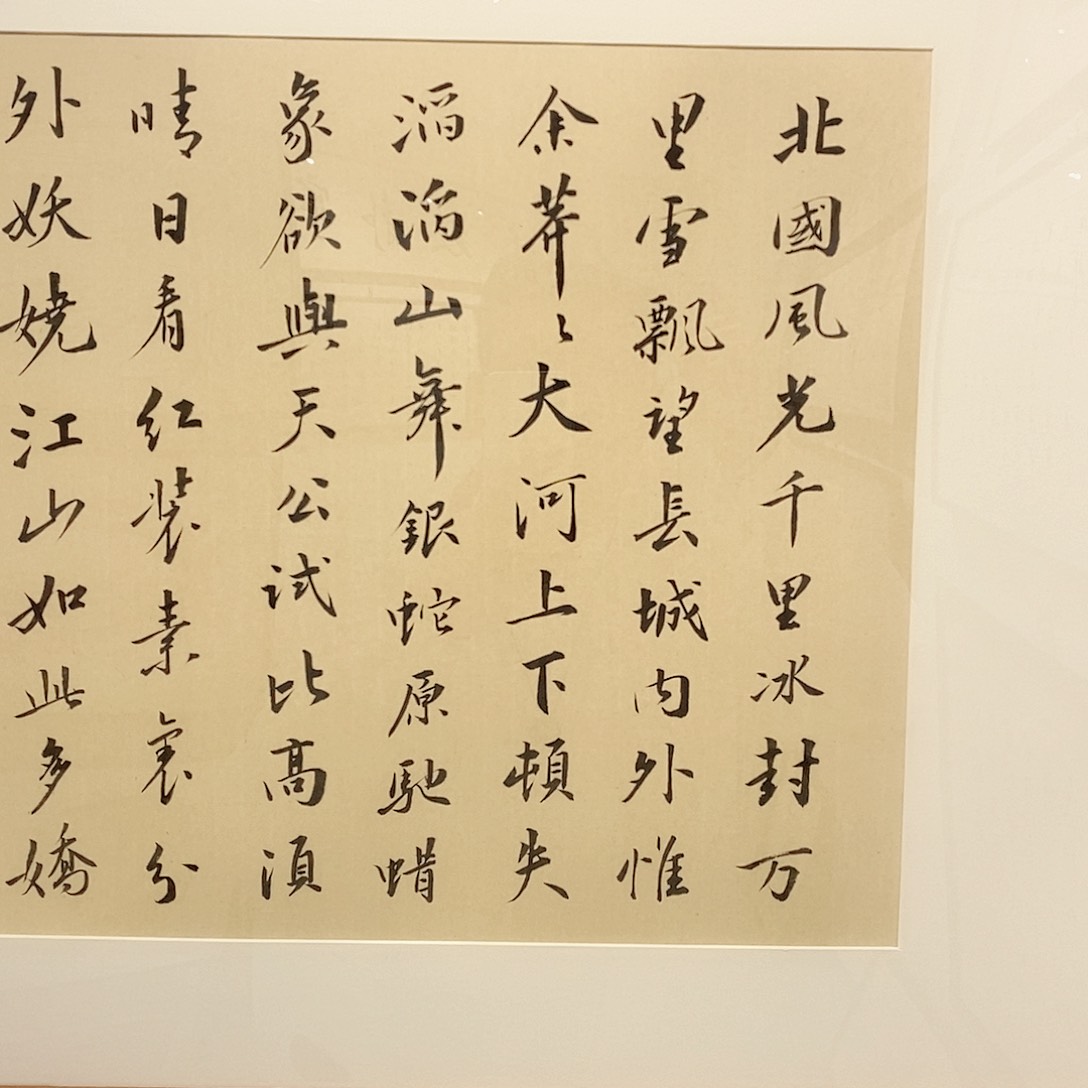 北國風光千里冰封万
里雪飄望長城内外惟
余莽〻大河上下頓失
滔滔山舞銀蛇原馳蜡
象欲與天公试比高須
晴日看红装素裹分
外妖娆江山如此多嬌